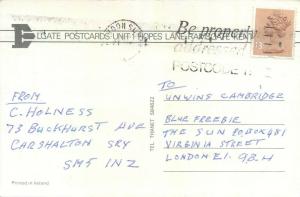 Be properly
addressed
POSTCODE
ELGATE POSTCARDS UNIT 1 HOPES LANE RAMSGATE KENT
FROM
C. HOLNESS
73 BUCKHURST AVE
CARSHALTON SRY
SM5 1NZ
TEL THANET
TO
UNWINS CAMBRIDGE
BLUE FREEBIE
THE SUN P.O.BOX 481
VIRGINIA STREET
LONDON E1. 9BH
Printed in Ireland